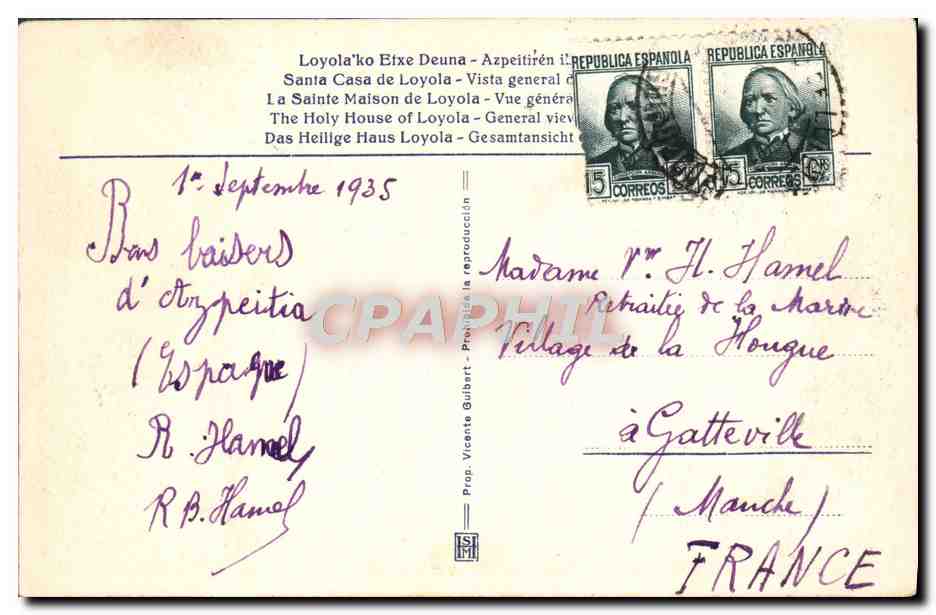 Loyola'ko Etxe Deuna - Azpeitirén
Santa Casa de Loyola - Vista general
La Sainte Maison de Loyola - Vue généra
The Holy House of Loyola - General view
Das Heilige Haus Loyola - Gesamtansicht
REPUBLICA ESPAÑOLA
15 CORREOS
REPUBLICA ESPAÑOLA
15 CORREOS
1er Septembre 1935
Bons baisers
d'Azpeitia
(Espagne)
R. Hamel
R B. Hamel
Prop. Vicente Guibert - Prohibida la reproducción
Madame Vve H. Hamel
Retraitée de la Marine
Village de la Hougue
à Gatteville
(Manche)
FRANCE
CPAPHIL